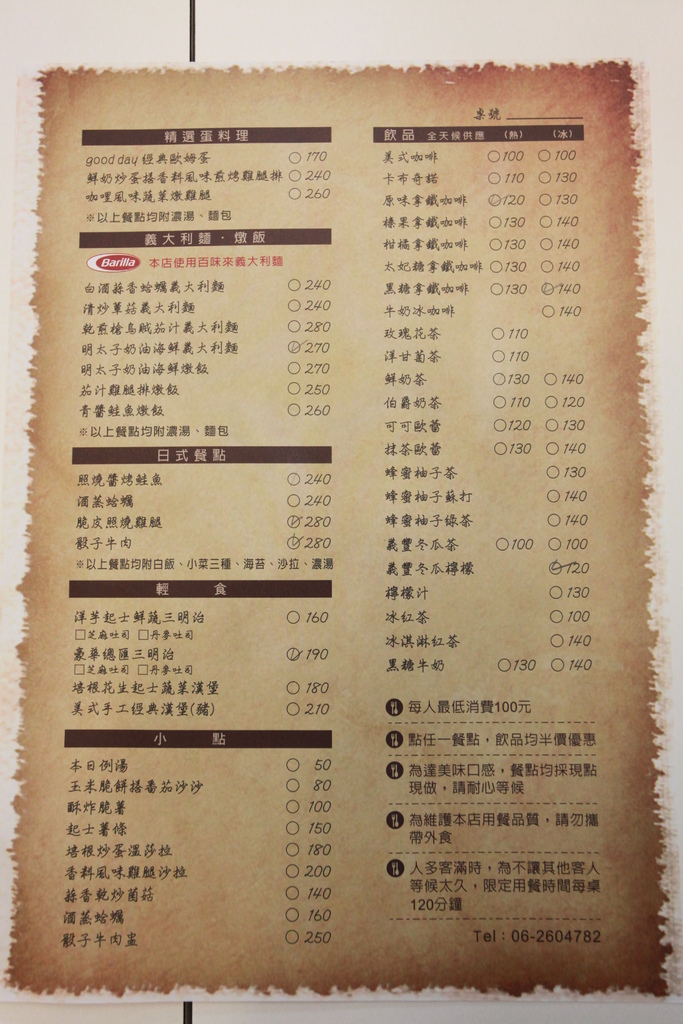 桌號
精選蛋料理
good day 經典歐姆蛋 ○ 170
鮮奶炒蛋搭香料風味煎烤雞腿排 ○ 240
咖哩風味蔬菜燉雞腿 ○ 260
※以上餐點均附濃湯、麵包
義大利麵．燉飯
Barilla 本店使用百味來義大利麵
白酒蒜香蛤蠣義大利麵 ○ 240
清炒蕈菇義大利麵 ○ 240
乾煎槍烏賊茄汁義大利麵 ○ 280
明太子奶油海鮮義大利麵 ○ 270
明太子奶油海鮮燉飯 ○ 270
茄汁雞腿排燉飯 ○ 250
青醬鮭魚燉飯 ○ 260
※以上餐點均附濃湯、麵包
日式餐點
照燒醬烤鮭魚 ○ 240
酒蒸蛤蠣 ○ 240
脆皮照燒雞腿 ○ 280
骰子牛肉 ○ 280
※以上餐點均附白飯、小菜三種、海苔、沙拉、濃湯
輕食
洋芋起士鮮蔬三明治 ○ 160
□芝麻吐司 □丹麥吐司
豪華總匯三明治 ○ 190
□芝麻吐司 □丹麥吐司
培根花生起士蔬菜漢堡 ○ 180
美式手工經典漢堡(豬) ○ 210
小點
本日例湯 ○ 50
玉米脆餅搭番茄沙沙 ○ 80
酥炸脆薯 ○ 100
起士薯條 ○ 150
培根炒蛋溫莎拉 ○ 180
香料風味雞腿沙拉 ○ 200
蒜香乾炒菌菇 ○ 140
酒蒸蛤蠣 ○ 160
骰子牛肉盅 ○ 250
飲品 全天候供應 (熱) (冰)
美式咖啡 ○100 ○ 100
卡布奇諾 ○ 110 ○ 130
原味拿鐵咖啡 ○120 ○ 130
榛果拿鐵咖啡 ○130 ○ 140
柑橘拿鐵咖啡 ○130 ○ 140
太妃糖拿鐵咖啡 ○130 ○ 140
黑糖拿鐵咖啡 ○130 ○ 140
牛奶冰咖啡 ○ 140
玫瑰花茶 ○ 110
洋甘菊茶 ○ 110
鮮奶茶 ○130 ○ 140
伯爵奶茶 ○ 110 ○ 120
可可歐蕾 ○120 ○ 130
抹茶歐蕾 ○130 ○ 140
蜂蜜柚子茶 ○ 130
蜂蜜柚子蘇打 ○ 140
蜂蜜柚子綠茶 ○ 140
義豐冬瓜茶 ○100 ○ 100
義豐冬瓜檸檬 ○ 120
檸檬汁 ○ 130
冰紅茶 ○ 100
冰淇淋紅茶 ○ 140
黑糖牛奶 ○130 ○ 140
每人最低消費100元
點任一餐點，飲品均半價優惠
為達美味口感，餐點均採現點
現做，請耐心等候
為維護本店用餐品質，請勿攜
帶外食
人多客滿時，為不讓其他客人
等候太久，限定用餐時間每桌
120分鐘
Tel：06-2604782